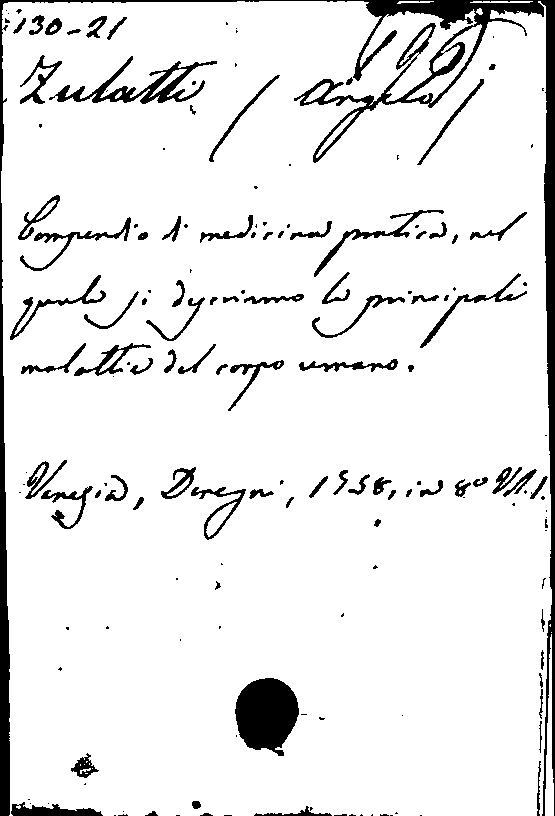 130-21
Zulatti / Angelo /
Compendio di medicina pratica, nel
quale si descrivono le principali
malattie del corpo umano.
Venezia, Deregni, 1758, in 8º Vl. 1.